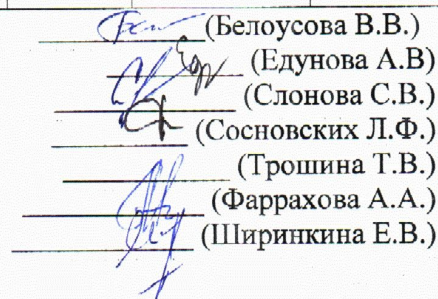 (Белоусова В.В.)
(Едунова А.В)
(Слонова С.В.)
(Сосновских Л.Ф.)
(Трошина Т.В.)
(Фаррахова А.А.)
(Ширинкина Е.В.)